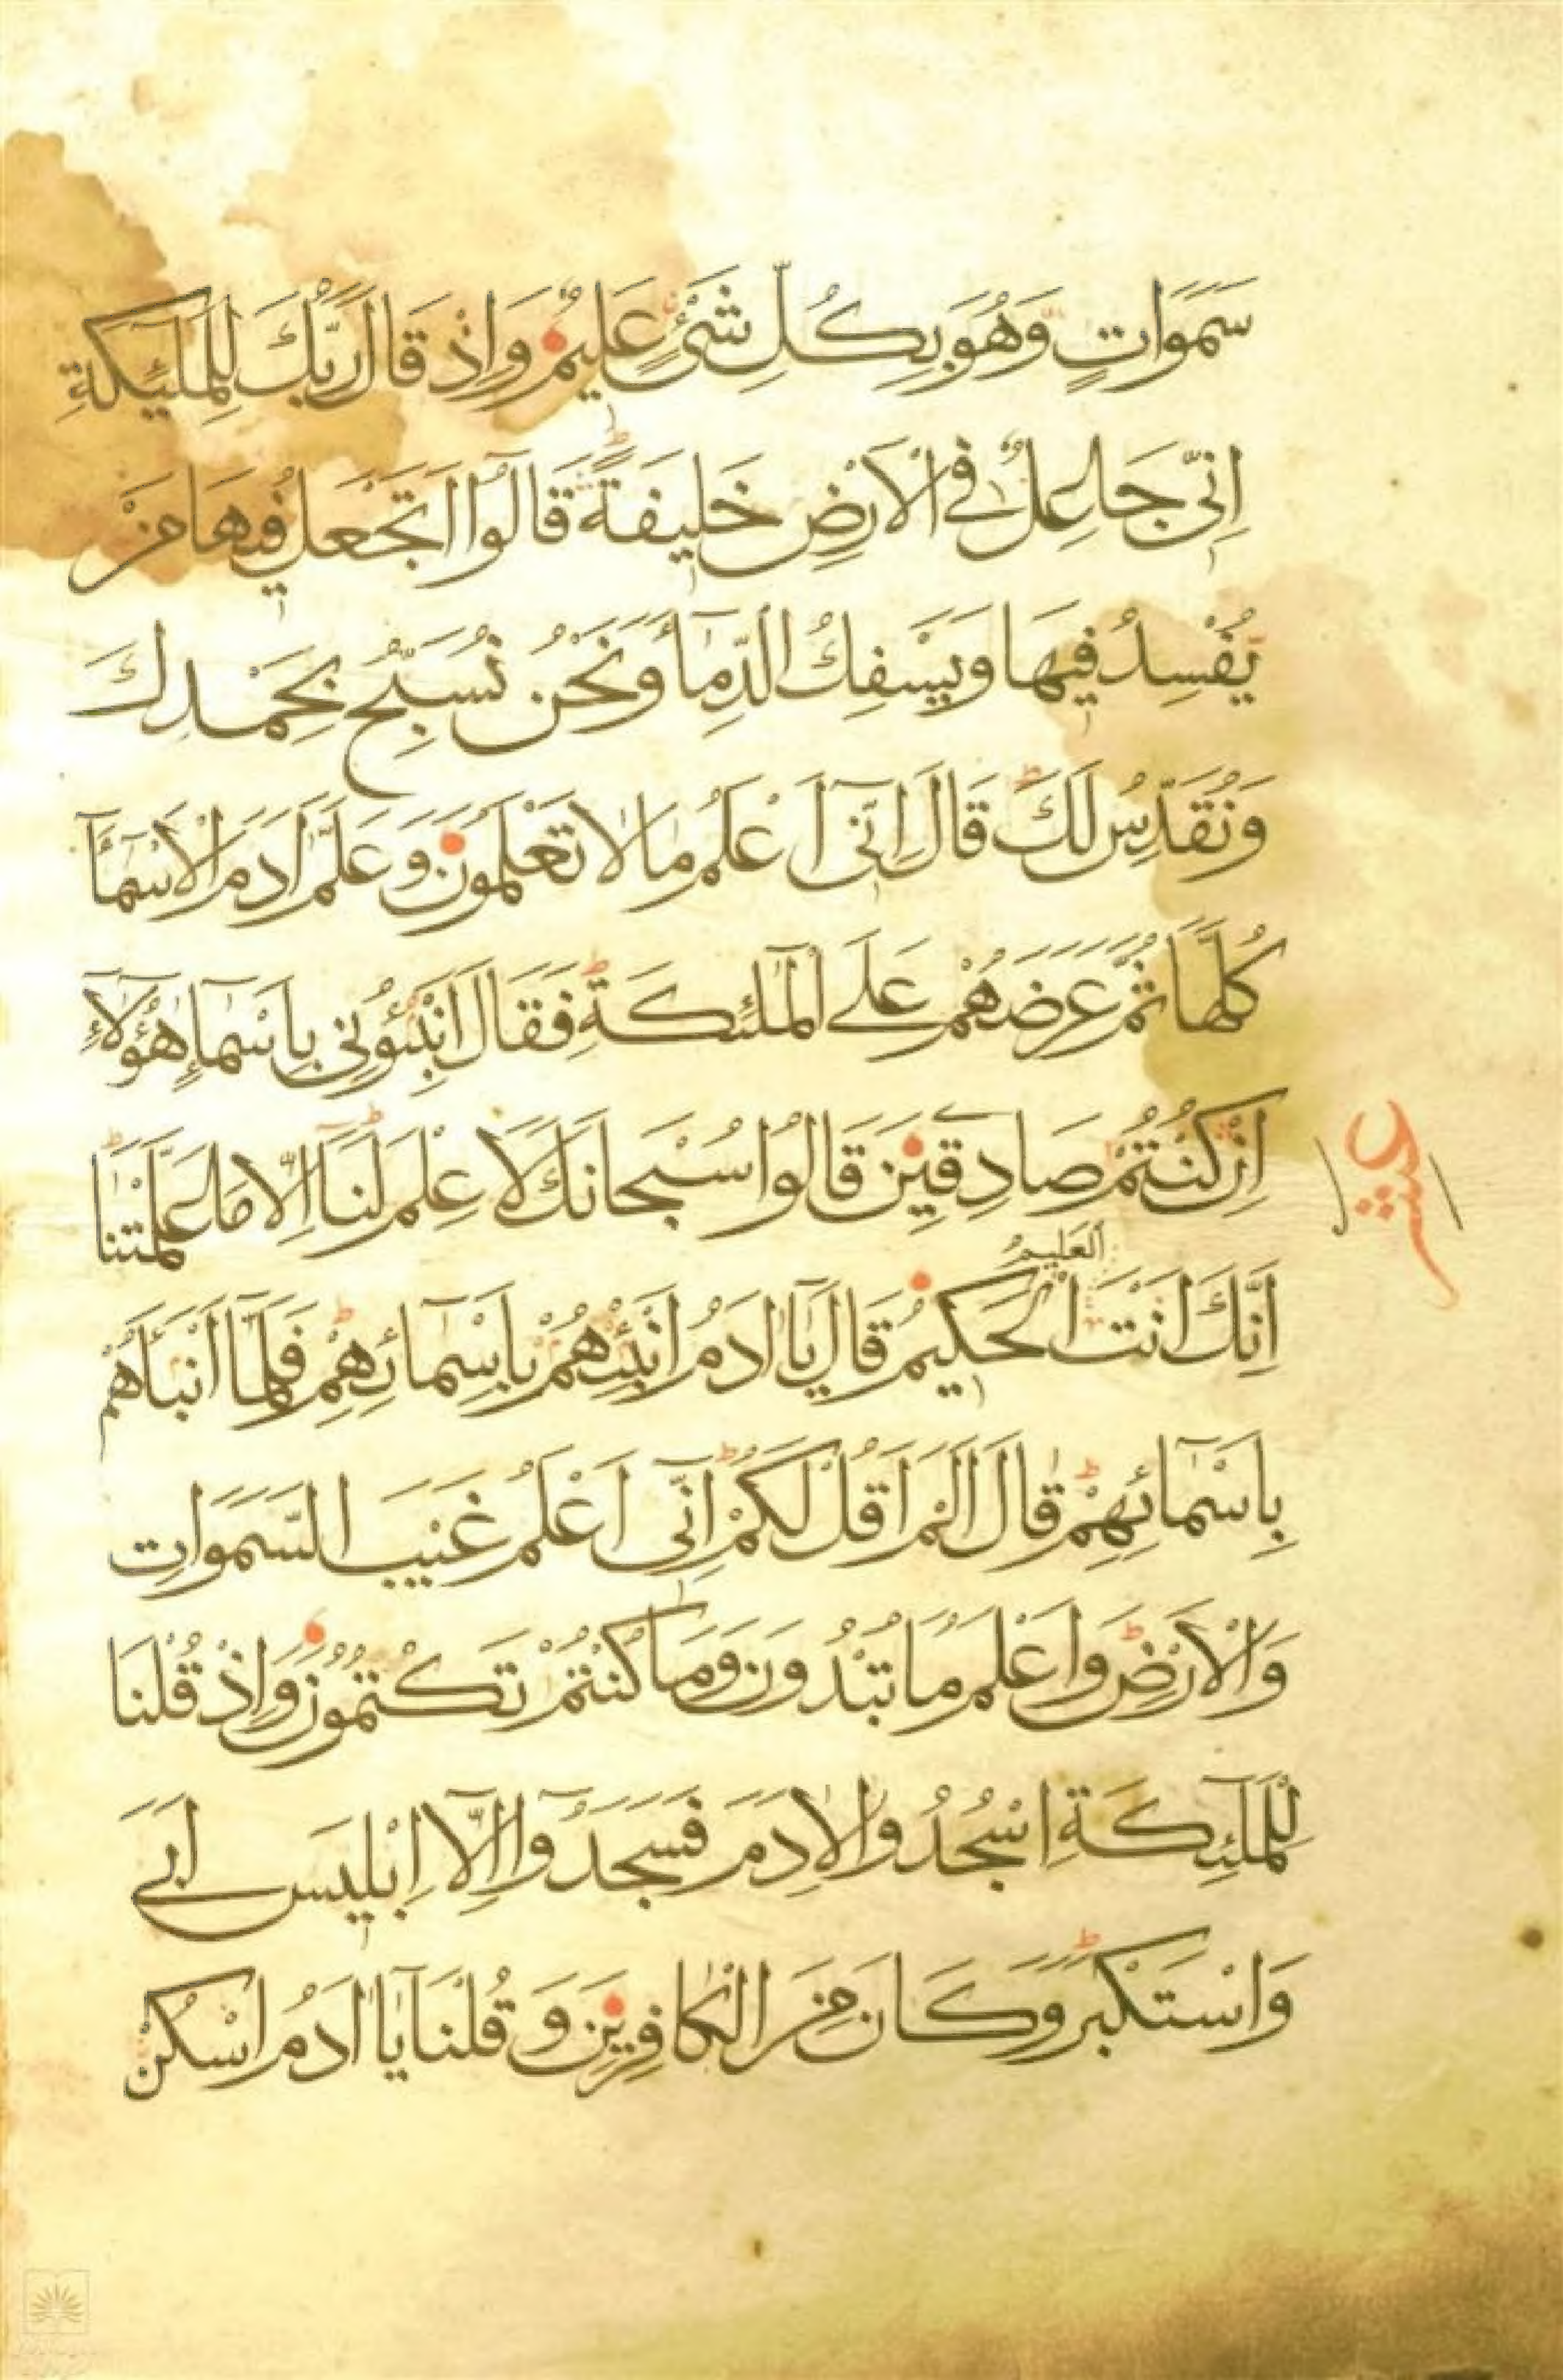 سَمَوَاتٍ وَهُوَ بِكُلِّ شَيْءٍ عَلِيمٌ وَاِذْ قَالَ رَبُّكَ لِلْمَلٰٓئِكَةِ
اِنِّى جَاعِلٌ فِى الْاَرْضِ خَلِيفَةً قَالُوٓا اَتَجْعَلُ فِيهَا مَنْ
يُفْسِدُ فِيهَا وَيَسْفِكُ الدِّمَآءَ وَنَحْنُ نُسَبِّحُ بِحَمْدِكَ
وَنُقَدِّسُ لَكَ قَالَ اِنِّىٓ اَعْلَمُ مَا لَا تَعْلَمُونَ وَعَلَّمَ اٰدَمَ الْاَسْمَآءَ
كُلَّهَا ثُمَّ عَرَضَهُمْ عَلَى الْمَلٰٓئِكَةِ فَقَالَ اَنْبِئُونِى بِاَسْمَآءِ هٰٓؤُلَآءِ
اِنْ كُنْتُمْ صَادِقِينَ قَالُوا سُبْحَانَكَ لَا عِلْمَ لَنَآ اِلَّا مَا عَلَّمْتَنَا
عشر
اِنَّكَ اَنْتَ الْعَلِيمُ الْحَكِيمُ قَالَ يَآ اٰدَمُ اَنْبِئْهُمْ بِاَسْمَآئِهِمْ فَلَمَّآ اَنْبَاَهُمْ
بِاَسْمَآئِهِمْ قَالَ اَلَمْ اَقُلْ لَكُمْ اِنِّىٓ اَعْلَمُ غَيْبَ السَّمَوَاتِ
وَالْاَرْضِ وَاَعْلَمُ مَا تُبْدُونَ وَمَا كُنْتُمْ تَكْتُمُونَ وَاِذْ قُلْنَا
لِلْمَلٰٓئِكَةِ اسْجُدُوا لِاٰدَمَ فَسَجَدُوٓا اِلَّآ اِبْلِيسَ اَبَى
وَاسْتَكْبَرَ وَكَانَ مِنَ الْكَافِرِينَ وَقُلْنَا يَآ اٰدَمُ اسْكُنْ